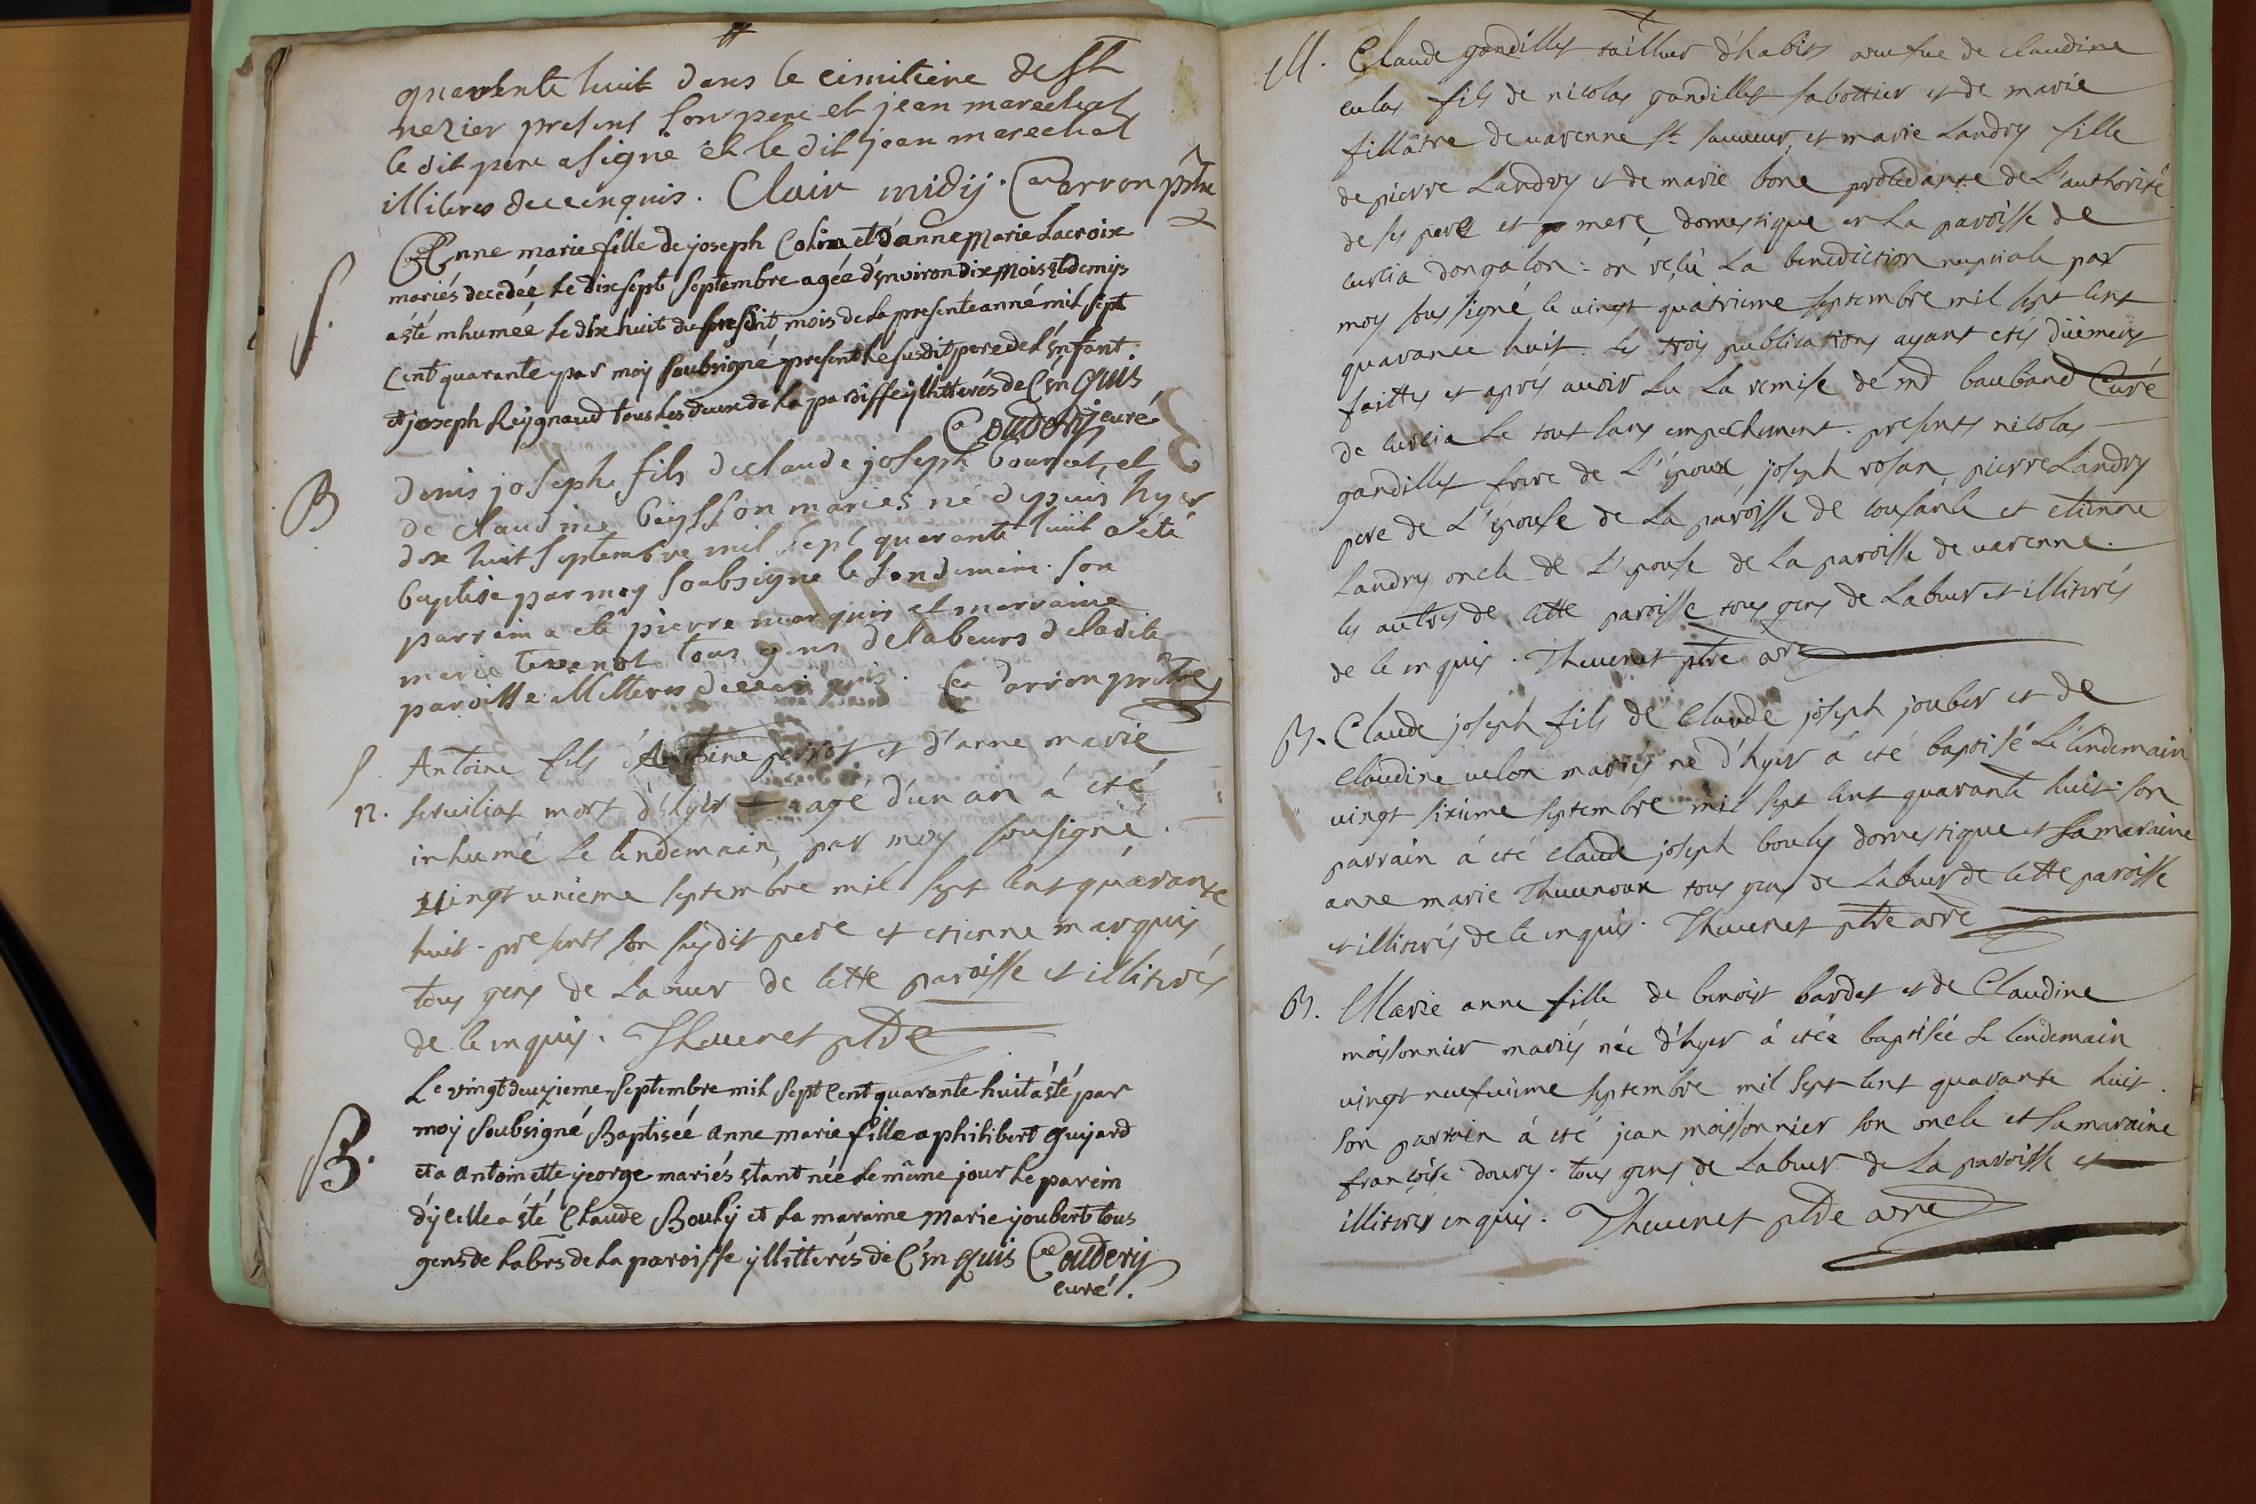 quarente huit dans le cimitiere de st
nezier presens son pere et jean marechal
le dit pere a signé et le dit jean marechal
illiteres de ce enquis. Clair midy. Carron pštre
S. Anne marie fille de joseph Colin et d'anne Marie Lacroix
mariés decedée le dix sept septembre agée d'environ dix mois et demys
a été inhumée le dix huit du present mois de la presente anné mil sept
Cent quarante par moy soubsigné present le susdit pere de l'enfant
et joseph Reygnaud tous les deux de la paroisse yllitterés de C'enquis
Couderij curé
B Denis joseph fils de claude joseph et
de claudine boysson mariés né depuis hyer
dix huit septembre mil sept quarante huit a été
baptisé par moy soubsigné le lendemain. son
parrein a été pierre marquis et marraine
marie tevenot tous gens de labeurs de la dite
paroisse illitteres de ce enquis. Carron prštre
S. Antoine fils d'Antoine perrot et d'anne marie
n. servillat mort d'hyer agé d'un an á eté
inhumé le lendemain, par moy sousigné.
vingt unieme septembre mil sept cent quarante
huit. presents son susdit pere et etienne marquis
tous gens de labeur de cette paroisse et illiterés
de ce enquis. Thevenet ptre
Le vingt deuzieme septembre mil sept Cent quarante huit a été par
B. moy soubsigné Baptisée Anne marie fille a philibert guijard
et a antoinette jeorge mariés etant née le même jour le parein
d'ycelle a été Claude Bouly et la maraine Marie joubert tous
gens de labrs de la paroisse yllitterés de C'enquis Couderij
curé.
M. Claude gandillet tailleur d'habits veufue de claudine
culas fils de nicolas gandillet sabottier et de marie
fillatre de varenne st. sauueur, et marie Landry fille
de pierre Landry et de marie bone procedante de L'authorité
de ses pere et mere domestique en La paroisse de
curcia dongalon: on reçu La benediction nuptiale par
moy sous signé le vingt quatrieme septembre mil sept cent
quarante huit. les trois publications ayant etés düement
faittes et aprés auoir lu La remise dé md bauband Curé
de curcia Le tout sans empechement. presents nicolas
gandillet frere de L'epoux, joseph rosan, pierre Landry
pere de L'epouse de La paroisse de cousance et etienne
Landry oncle de L'epouse de La paroisse de varenne.
les autres de cette paroisse tous gens de Labeur et illiterés
de ce enquis. Thevenet ptre vre
B. Claude joseph fils de Claude joseph jouber et de
Claudine velon mariés né d'hyer á eté baptisé Le lendemain
vingt sixieme septembre mil sept cent quarante huit. son
parrain á eté claude joseph bouly domestique et sa maraine
anne marie Thevenoux tous gens de Labeur de cette paroisse
et illiterés de ce enquis. Thevenet ptre vre
B. Marie anne fille de benoist bardet et de Claudine
moissonnier mariés née d'hyer á eté baptisée Le lendemain
vingt neufvieme septembre mil sept cent quarante huit.
son parrain á eté jean moissonnier son oncle et sa maraine
françoise doury. tous gens de Labeur de La paroisse et
illiterés enquis. Thevenet ptre vre